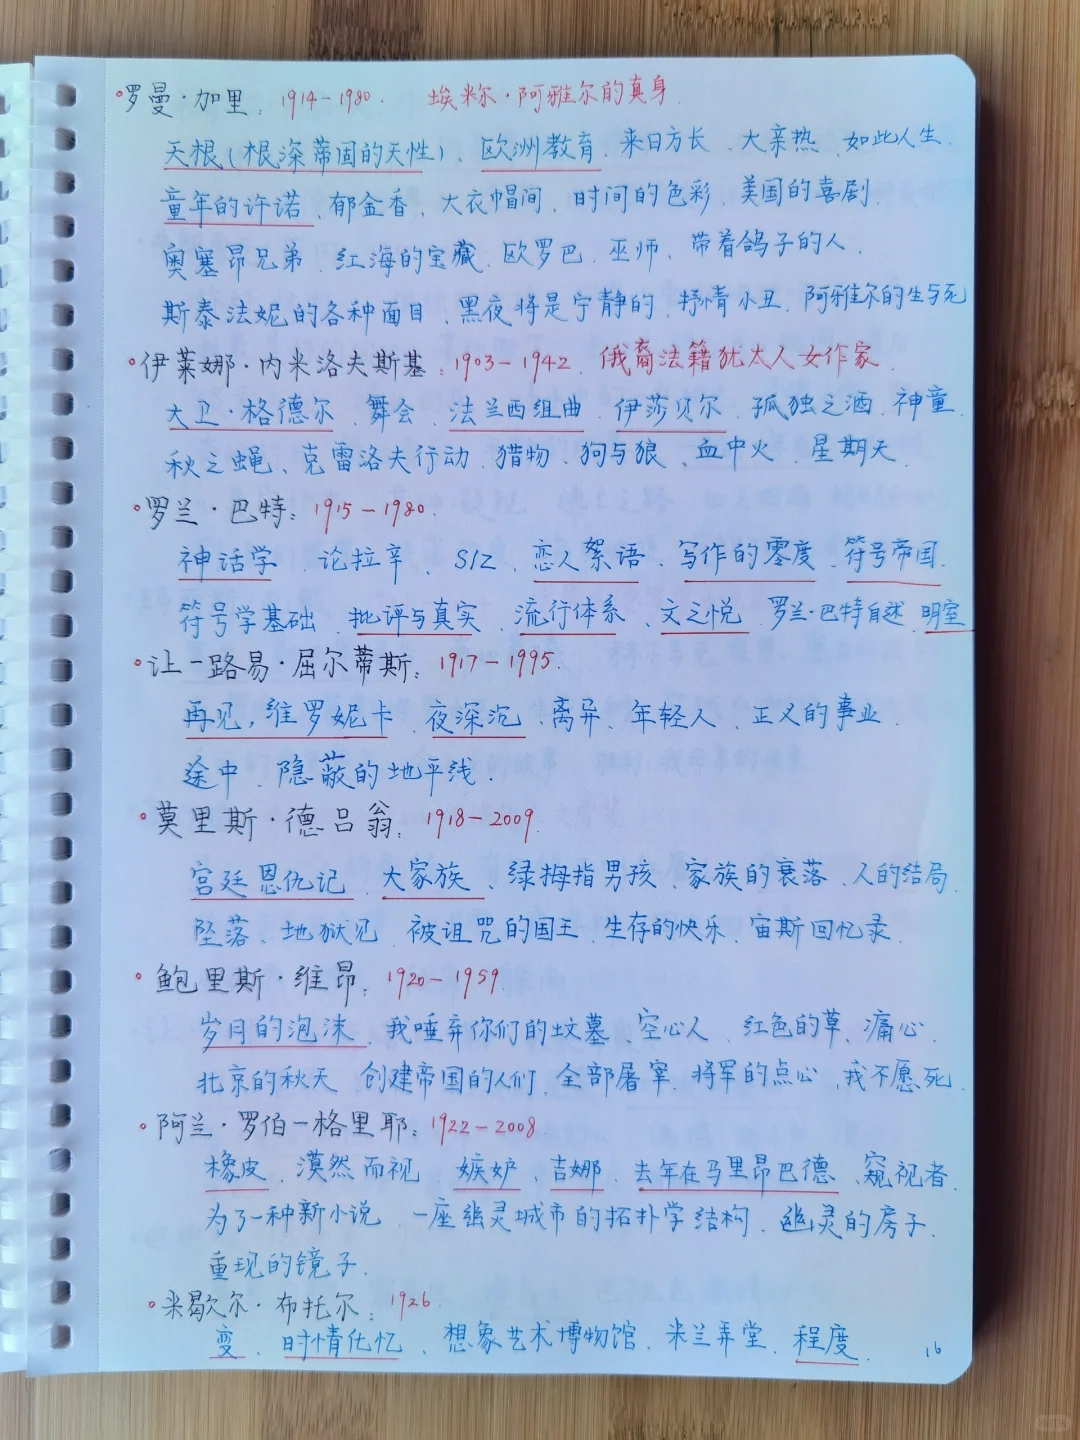 罗曼·加里：1914－1980. 埃米尔·阿雅尔的真身.
天根(根深蒂固的天性)、欧洲教育、来日方长、大亲热、如此人生.
童年的许诺、郁金香、大衣帽间、时间的色彩、美国的喜剧.
奥塞昂兄弟、红海的宝藏、欧罗巴、巫师、带着鸽子的人.
斯泰法妮的各种面目、黑夜将是宁静的、抒情小丑、阿雅尔的生与死
伊莱娜·内米洛夫斯基：1903－1942. 俄裔法籍犹太人女作家.
大卫·格德尔、舞会、法兰西组曲、伊莎贝尔、孤独之酒、神童.
秋之蝇、克雷洛夫行动、猎物、狗与狼、血中火、星期天.
罗兰·巴特：1915－1980.
神话学、论拉辛、S/Z、恋人絮语、写作的零度、符号帝国.
符号学基础、批评与真实、流行体系、文之悦、罗兰·巴特自述、明室
让－路易·屈尔蒂斯：1917－1995.
再见，维罗妮卡、夜深沉、离异、年轻人、正义的事业、
途中、隐蔽的地平线.
莫里斯·德吕翁：1918－2009.
宫廷恩仇记、大家族、绿拇指男孩、家族的衰落、人的结局.
坠落、地狱见、被诅咒的国王、生存的快乐、宙斯回忆录.
鲍里斯·维昂：1920－1959.
岁月的泡沫、我唾弃你们的坟墓、空心人、红色的草、痛心.
北京的秋天、创建帝国的人们、全部屠宰、将军的点心、我不愿死.
阿兰·罗伯－格里耶：1922－2008.
橡皮、漠然而视、嫉妒、吉娜、去年在马里昂巴德、窥视者.
为了一种新小说、一座幽灵城市的拓扑学结构、幽灵的房子.
重现的镜子.
米歇尔·布托尔：1926.
变、时情化忆、想象艺术博物馆、米兰弄堂、程度.
16